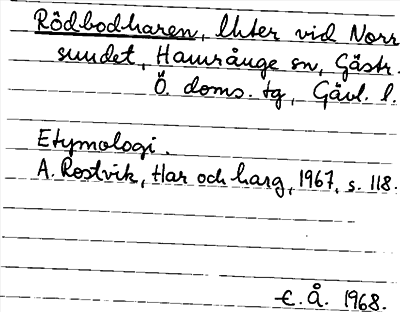 Rödbodharen, Ihter vid Norr
sundet, Hamrånge sn, Gästr.
Ö. doms. tg, Gävl. l.
Etymologi.
A. Rostvik, Har och harg, 1967, s. 118.
€. Å. 1968.